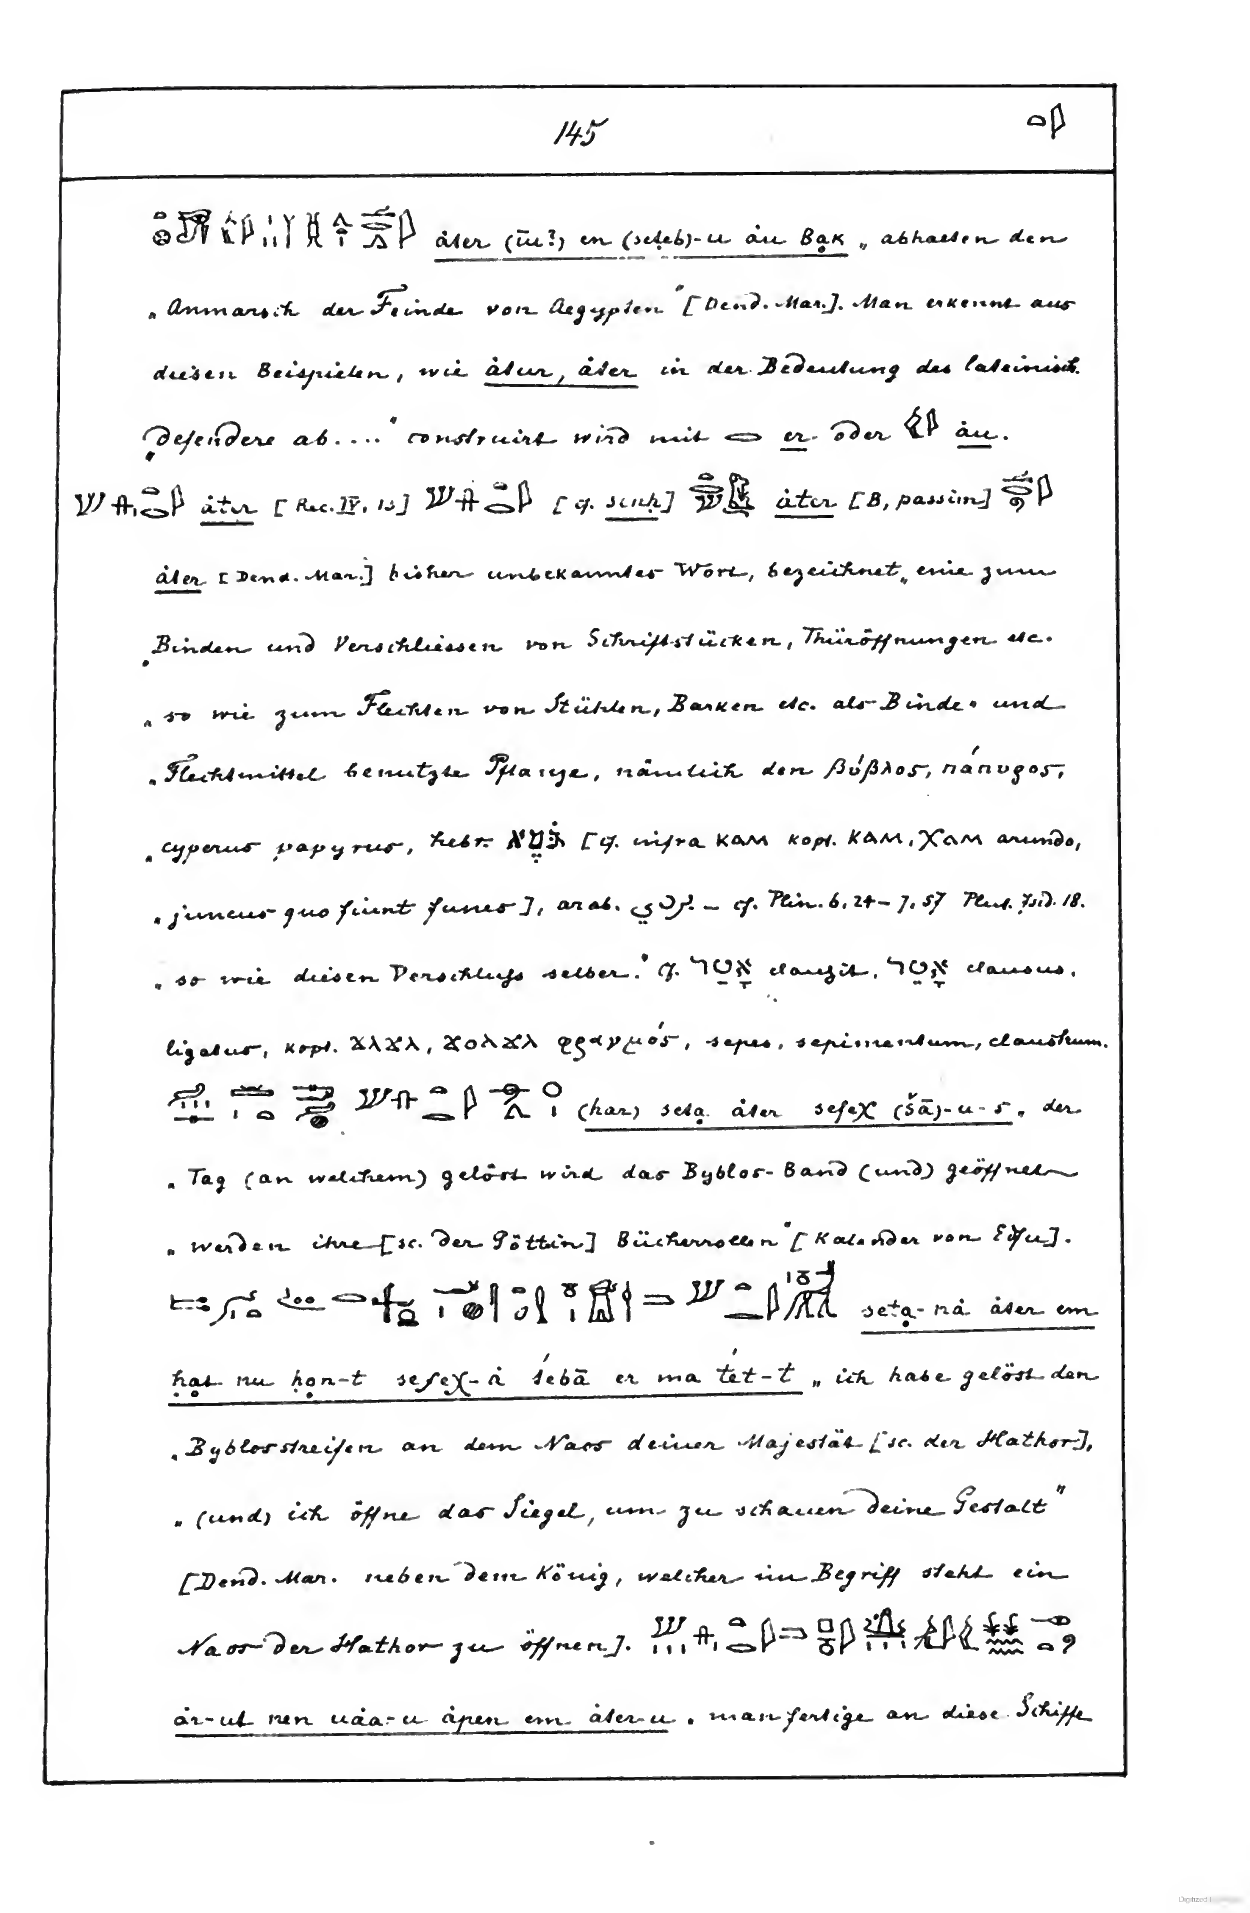 145
åter (iu?) en (seteb)-u åu Bak „abhalten den
„Anmarsch der Feinde von Aegypten" [Dend. Mar.]. Man erkennt aus
diesen Beispielen, wie åtur, åter in der Bedeutung des lateinisch.
„defendere ab...." construirt wird mit er oder åu.
åter [Rec. IV, 15] [cf. senḥ] åter [B, passim]
åter [Dend. Mar.] bisher unbekanntes Wort, bezeichnet „eine zum
„Binden und Verschliessen von Schriftstücken, Thüröffnungen etc.
„so wie zum Flechten von Stühlen, Barken etc. als Binde- und
„Flechtmittel benutzte Pflanze, nämlich den βύβλος, πάπυρος,
„cyperus papyrus, hebr. גֹּמֶא [cf. infra KAM kopt. ⲕⲁⲙ, ⲭⲁⲙ arundo,
„juncus quo fiunt funes], arab. بردي – cf. Plin. 6, 24 – 7, 57 Plut. Isid. 18.
„so wie diesen Verschluss selber." cf. אָטַר clausit, אָטֵר clausus,
ligatus, kopt. ϫⲗϫⲗ, ϫⲟⲗϫⲗ φραγμός, sepes, sepimentum, claustrum.
(har) seta åter sefeχ (šā)-u-s „der
„Tag (an welchem) gelöst wird das Byblos-Band (und) geöffnet
„werden ihre [sc. der Göttin] Bücherrollen" [Kalender von Edfu].
seta-nå åter em
ḥat nu ḥon-t sefeχ-å śebā er ma tét-t „ich habe gelöst den
„Byblosstreifen an dem Naos deiner Majestät [sc. der Hathor],
„(und) ich öffne das Siegel, um zu schauen deine Gestalt"
[Dend. Mar. neben dem König, welcher im Begriff steht ein
Naos der Hathor zu öffnen].
år-ut nen uåa-u åpen em åter-u „man fertige an diese Schiffe